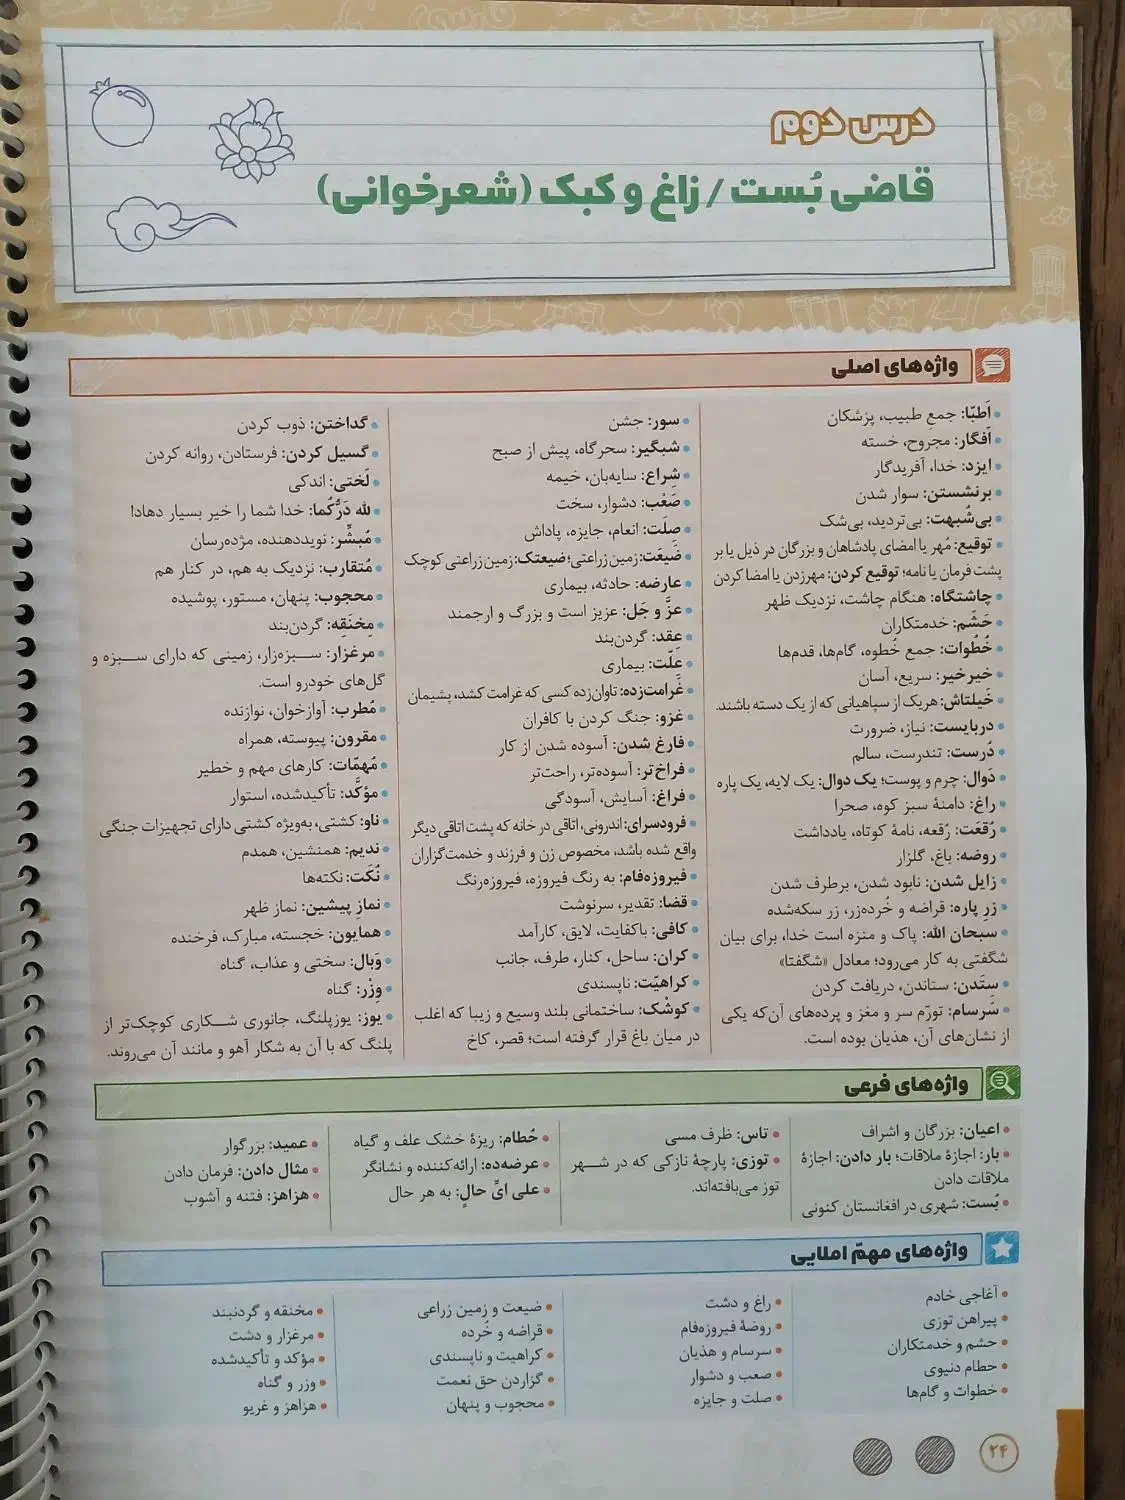 درس دوم
قاضی بُست / زاغ و کبک (شعرخوانی)
واژه‌های اصلی
اَطبّا: جمعِ طبیب، پزشکان
اَفگار: مجروح، خسته
ایزد: خدا، آفریدگار
برنشستن: سوار شدن
بی‌شُبهت: بی‌تردید، بی‌شک
توقیع: مُهر یا امضای پادشاهان و بزرگان در ذیل یا بر
پشت فرمان یا نامه؛ توقیع کردن: مهرزدن یا امضا کردن
چاشتگاه: هنگام چاشت، نزدیک ظهر
حَشَم: خدمتکاران
خُطُوات: جمع خُطوه، گام‌ها، قدم‌ها
خیرخیر: سریع، آسان
خَیلتاش: هریک از سپاهیانی که از یک دسته باشند.
دربایست: نیاز، ضرورت
دُرست: تندرست، سالم
دَوال: چرم و پوست؛ یک دوال: یک لایه، یک پاره
راغ: دامنهٔ سبز کوه، صحرا
رُقعَت: رُقعه، نامهٔ کوتاه، یادداشت
روضه: باغ، گلزار
زایل شدن: نابود شدن، برطرف شدن
زرِ پاره: قراضه و خُرده‌زر، زر سکه‌شده
سبحان الله: پاک و منزه است خدا، برای بیان
شگفتی به کار می‌رود؛ معادل «شگفتا»
ستَدن: ستاندن، دریافت کردن
سَرسام: تورّم سر و مغز و پرده‌های آن‌که یکی
از نشان‌های آن، هذیان بوده است.
سور: جشن
شبگیر: سحرگاه، پیش از صبح
شِراع: سایه‌بان، خیمه
صَعْب: دشوار، سخت
صِلَت: انعام، جایزه، پاداش
ضَیعَت: زمین زراعتی؛ ضیعتک: زمین زراعتی کوچک
عارضه: حادثه، بیماری
عزَّ و جَل: عزیز است و بزرگ و ارجمند
عِقد: گردن‌بند
عِلّت: بیماری
غَرامت‌زده: تاوان‌زده کسی که غرامت کشد، پشیمان
غزو: جنگ کردن با کافران
فارغ شدن: آسوده شدن از کار
فراخ‌تر: آسوده‌تر، راحت‌تر
فراغ: آسایش، آسودگی
فرودسرای: اندرونی، اتاقی در خانه که پشت اتاقی دیگر
واقع شده باشد، مخصوص زن و فرزند و خدمت‌گزاران
فیروزه‌فام: به رنگ فیروزه، فیروزه‌رنگ
قضا: تقدیر، سرنوشت
کافی: باکفایت، لایق، کارآمد
کران: ساحل، کنار، طرف، جانب
کراهیّت: ناپسندی
کوشْک: ساختمانی بلند وسیع و زیبا که اغلب
در میان باغ قرار گرفته است؛ قصر، کاخ
گداختن: ذوب کردن
گسیل کردن: فرستادن، روانه کردن
لَختی: اندکی
لله دَرُّکُما: خدا شما را خیر بسیار دهاد!
مُبشِّر: نویددهنده، مژده‌رسان
مُتقارب: نزدیک به هم، در کنار هم
محجوب: پنهان، مستور، پوشیده
مِخنَقِه: گردن‌بند
مرغزار: سبزه‌زار، زمینی که دارای سبزه و
گل‌های خودرو است.
مُطرب: آوازخوان، نوازنده
مقرون: پیوسته، همراه
مُهمّات: کارهای مهم و خطیر
مؤکَّد: تأکیدشده، استوار
ناو: کشتی، به‌ویژه کشتی دارای تجهیزات جنگی
ندیم: همنشین، همدم
نُکَت: نکته‌ها
نمازِ پیشین: نماز ظهر
همایون: خجسته، مبارک، فرخنده
وَبال: سختی و عذاب، گناه
وِزْر: گناه
یوز: یوزپلنگ، جانوری شکاری کوچک‌تر از
پلنگ که با آن به شکار آهو و مانند آن می‌روند.
واژه‌های فرعی
اعیان: بزرگان و اشراف
بار: اجازهٔ ملاقات؛ بار دادن: اجازهٔ
ملاقات دادن
بُست: شهری در افغانستان کنونی
تاس: ظرف مسی
توزی: پارچهٔ نازکی که در شهر
توز می‌بافته‌اند.
حُطام: ریزهٔ خشک علف و گیاه
عرضه‌ده: ارائه‌کننده و نشانگر
علی ایِّ حالٍ: به هر حال
عمید: بزرگوار
مثال دادن: فرمان دادن
هزاهز: فتنه و آشوب
واژه‌های مهمّ املایی
آغاجی خادم
پیراهن توزی
حشم و خدمتکاران
حطام دنیوی
خطوات و گام‌ها
راغ و دشت
روضهٔ فیروزه‌فام
سرسام و هذیان
صعب و دشوار
صلت و جایزه
ضیعت و زمین زراعی
قراضه و خُرده
کراهیت و ناپسندی
گزاردن حق نعمت
محجوب و پنهان
مخنقه و گردنبند
مرغزار و دشت
مؤکد و تأکیدشده
وزر و گناه
هزاهز و غریو
۲۴